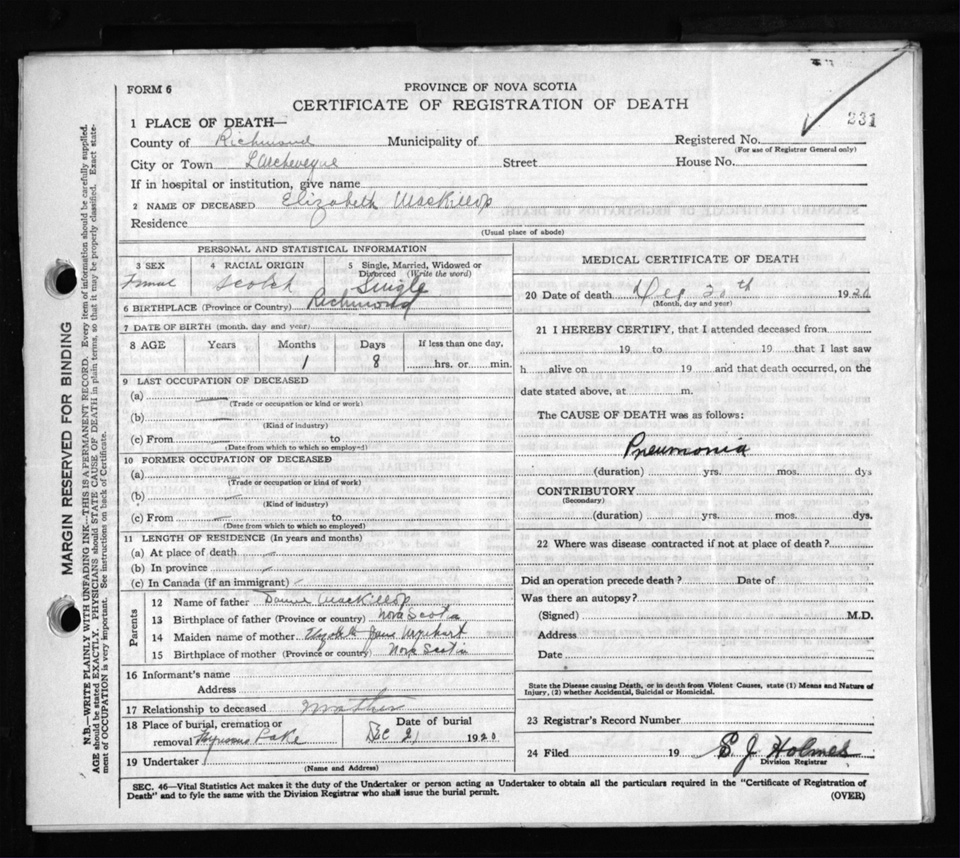 FORM 6
PROVINCE OF NOVA SCOTIA
CERTIFICATE OF REGISTRATION OF DEATH
231
1 PLACE OF DEATH—
County of Richmond Municipality of Registered No.
(For use of Registrar General only)
City or Town L'Archeveque Street House No.
If in hospital or institution, give name
2 NAME OF DECEASED Elizabeth MacKillop
Residence
(Usual place of abode)
PERSONAL AND STATISTICAL INFORMATION
3 SEX 4 RACIAL ORIGIN 5 Single, Married, Widowed or Divorced (Write the word)
Scotch Single
6 BIRTHPLACE (Province or Country) Richmond
7 DATE OF BIRTH (month, day and year)
8 AGE Years Months Days If less than one day,
1 8 hrs. or min.
9 LAST OCCUPATION OF DECEASED
(a)
(Trade or occupation or kind or work)
(b)
(Kind of industry)
(c) From to
(Date from which to which so employed)
10 FORMER OCCUPATION OF DECEASED
(a)
(Trade or occupation or kind of work)
(b)
(Kind of industry)
(c) From to
(Date from which to which so employed)
11 LENGTH OF RESIDENCE (In years and months)
(a) At place of death
(b) In province
(c) In Canada (if an immigrant)
Parents
12 Name of father MacKillop
13 Birthplace of father (Province or country) Nova Scotia
14 Maiden name of mother Jane Urquhart
15 Birthplace of mother (Province or country) Nova Scotia
16 Informant's name
Address
17 Relationship to deceased Mother
18 Place of burial, cremation or removal Date of burial
Dec 21 1920
19 Undertaker
(Name and Address)
MEDICAL CERTIFICATE OF DEATH
20 Date of death Dec 20th 1920
(Month, day and year)
21 I HEREBY CERTIFY, that I attended deceased from
19 to 19 that I last saw
h alive on 19 and that death occurred, on the
date stated above, at m.
The CAUSE OF DEATH was as follows:
Pneumonia
(duration) yrs. mos. dys
CONTRIBUTORY
(Secondary)
(duration) yrs. mos. dys.
22 Where was disease contracted if not at place of death?
Did an operation precede death? Date of
Was there an autopsy?
(Signed) M.D.
Address
Date
State the Disease causing Death, or in death from Violent Causes, state (1) Means and Nature of
Injury, (2) whether Accidental, Suicidal or Homicidal.
23 Registrar's Record Number
24 Filed 19 E. J. Holmes
Division Registrar
SEC. 46—Vital Statistics Act makes it the duty of the Undertaker or person acting as Undertaker to obtain all the particulars required in the "Certificate of Registration of
Death" and to fyle the same with the Division Registrar who shall issue the burial permit.
(OVER)
MARGIN RESERVED FOR BINDING
N.B.—WRITE PLAINLY WITH UNFADING INK—THIS IS A PERMANENT RECORD. Every item of information should be carefully supplied.
AGE should be stated EXACTLY. PHYSICIANS should STATE CAUSE OF DEATH in plain terms, so that it may be properly classified. Exact state-
ment of OCCUPATION is very important. See instructions on back of Certificate.